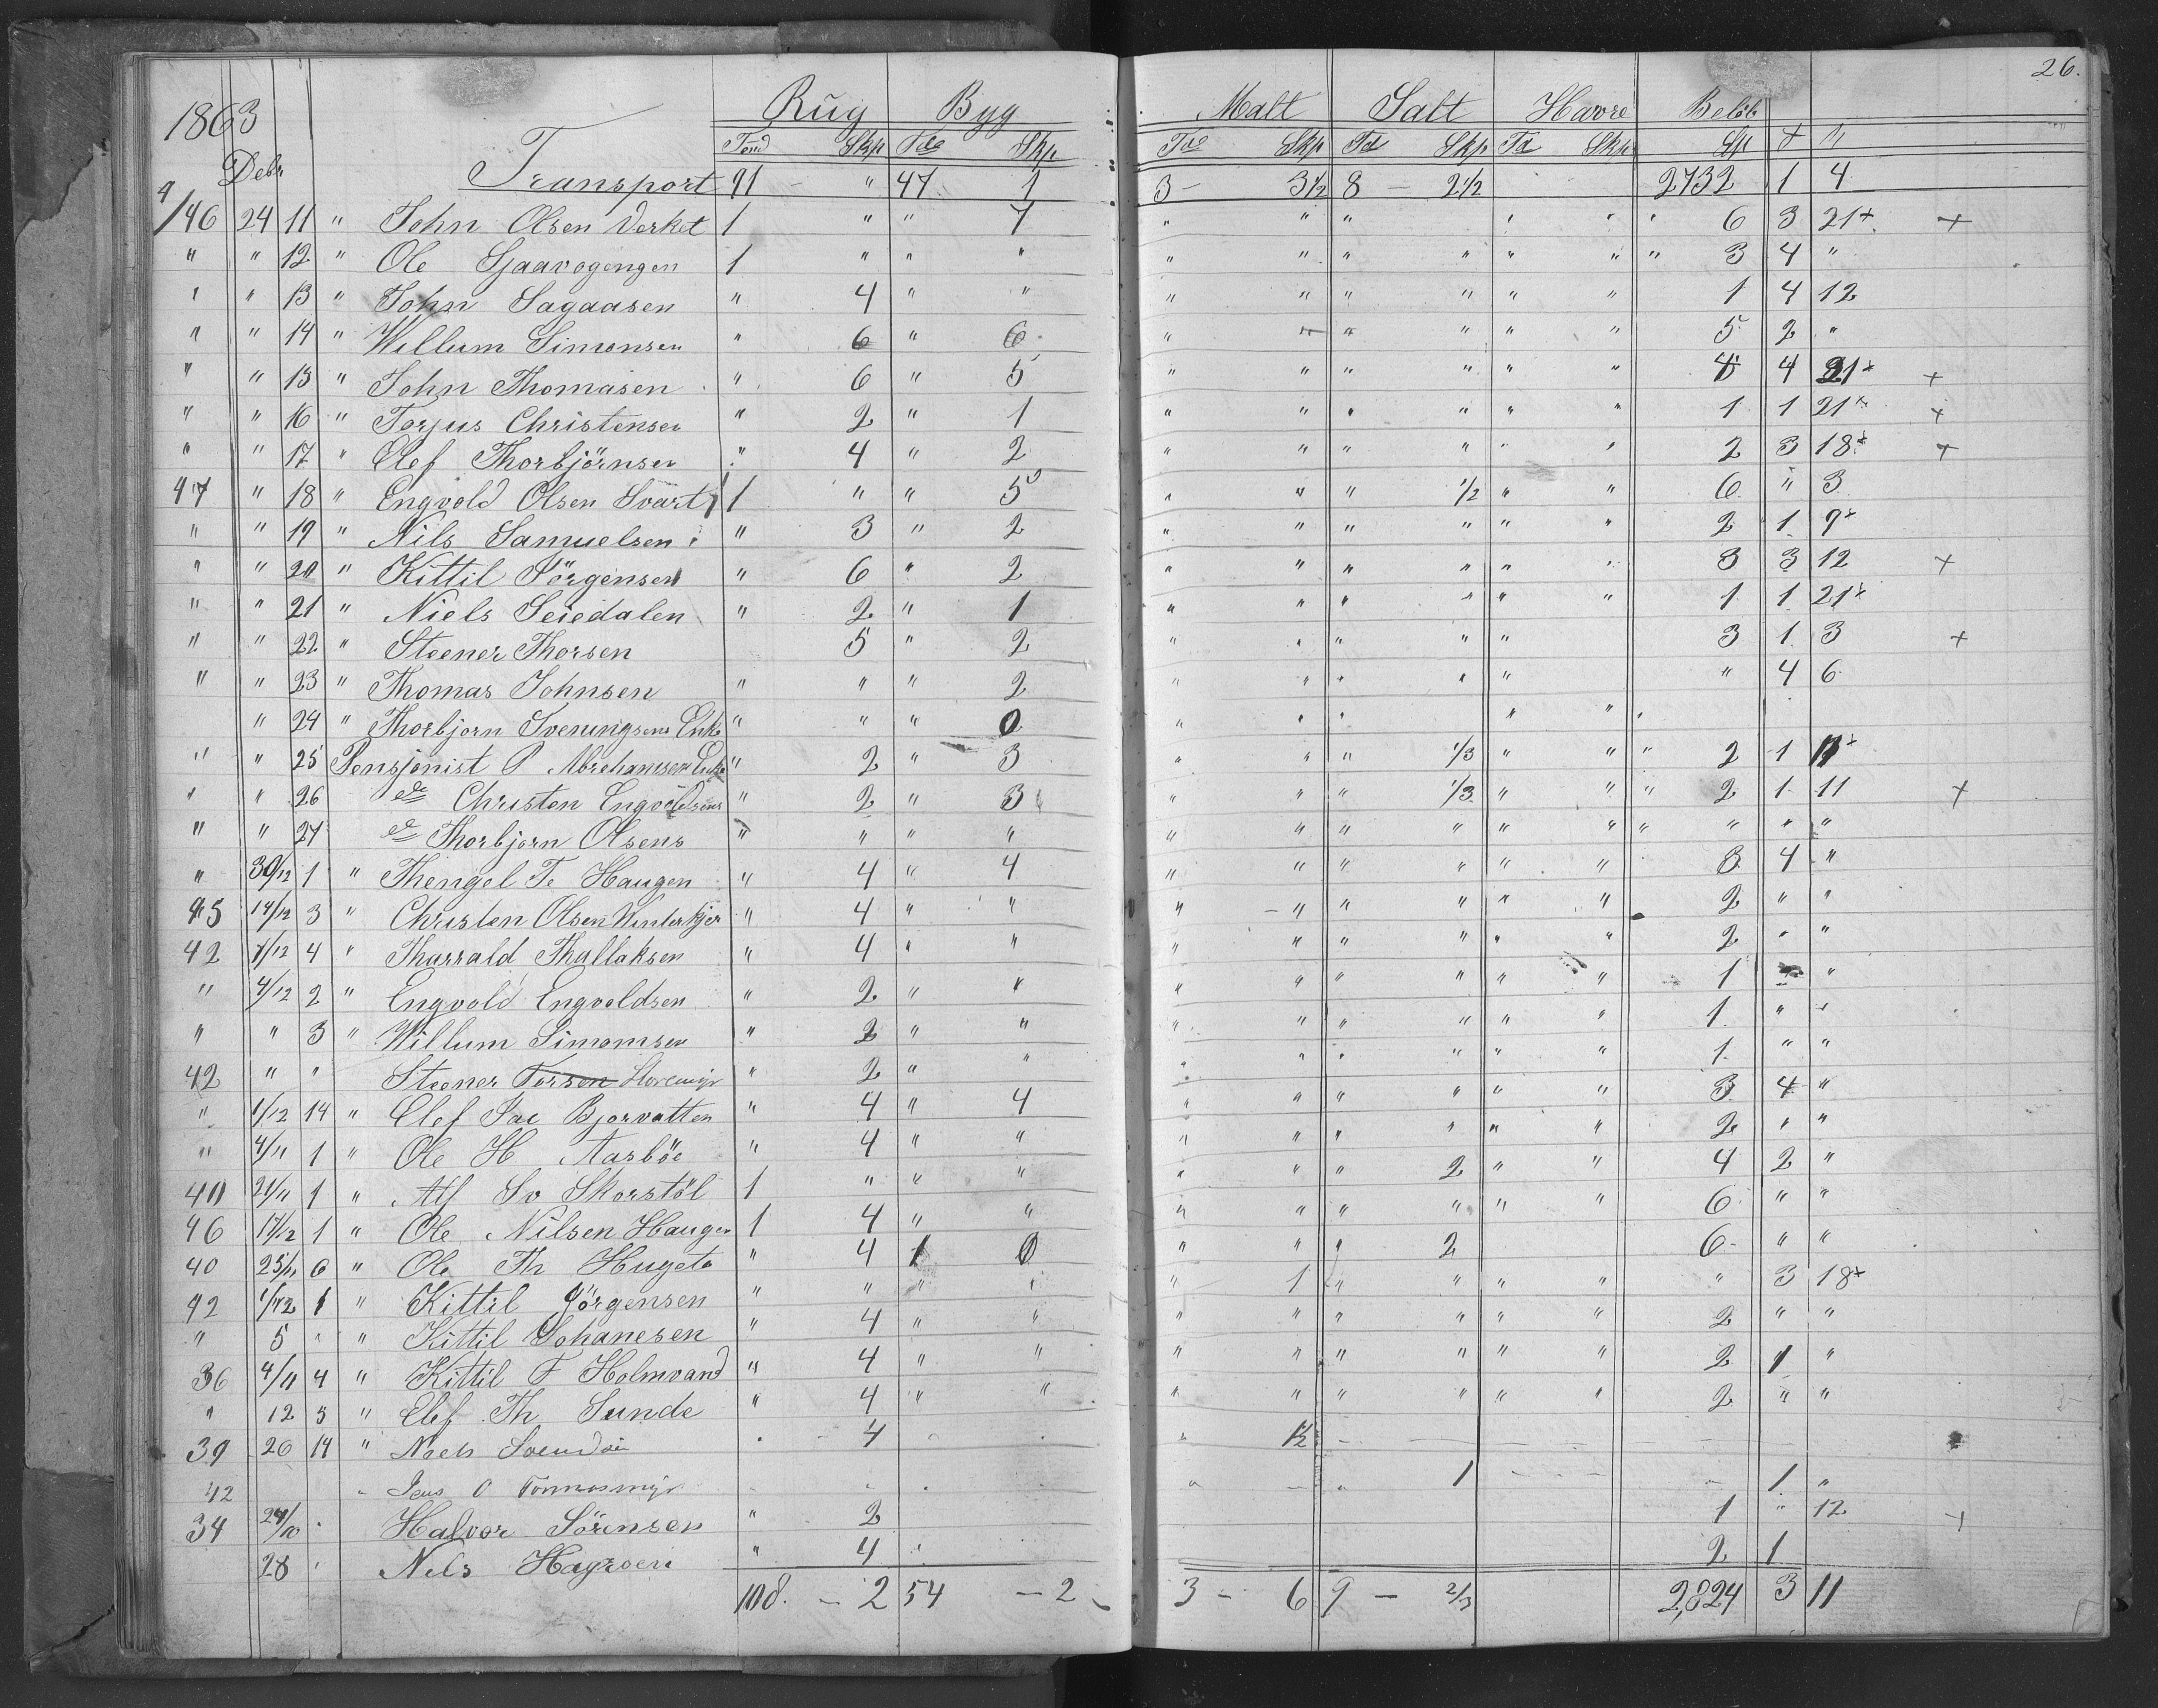 26.
1863 Rug Byg Malt Salt Havre Beløb
Debr Tønd Skp Tde Skp Tde Skp Td Skp Td Skp
Transport 91 - " 47 1 3 - 3½ 8 - 2½ 2732 1 4
9/46 24 11 " John Olsen Verket 1 " " 7 " " " 6 3 21+ +
" " 12 " Ole 1 " " " " " " " " " " 3 4 "
" " 13 " John Sagaasen " 4 " " " " " " " " 1 4 12
" " 14 " Willum Simonsen " 6 " 6 " " " " " " 5 2 "
" " 15 " John Thomasen " 6 " 5 " " " " " " 4 21+ +
" " 16 " Torjus Christensen " 2 " 1 " " " " " " 1 1 21+ +
" " 17 " Olef Thorbjörnsen " 4 " 2 " " " " " " 2 3 18+ +
47 " 18 " Engvold Olsen Svart 1 " " 5 " " " ½ " " 6 " 3
" " 19 " Nils Samuelsen " 3 " 2 " " " " " " 2 1 9+
" " 20 " Kittil Jörgensen " 6 " 2 " " " " " " 3 3 12 +
" " 21 " Niels Seiedalen " 2 " 1 " " " " " " 1 1 21+
" " 22 " Steener Thorsen 5 " 2 " " " " " 3 1 3 +
" " 23 " Thomas Johnsen " " " 2 " " " " " " 4 6
" 24 " Thorbjorn Svenungsens Enke " " " 0 " " " " "
" " 25 Pensjonist P Abrehamsen Enke " 2 " 3 " " " 1/3 " " " 2 1
" " 26 do Christen Engvoldsens " 2 " 3 " " " 1/3 " " " 2 1 11 +
" " 27 do Thorbjorn Olsens " " " " " " " " " " " " " "
" 30/12 1 " Thengel Te Haugen " 4 " 4 " " " " " " 3 4 "
45 14/12 3 " Christen Olsen Vinterkjer " 4 " " " " " " " " 2 " "
42 7/12 4 " Tharrald Thallaksen " 4 " " " " " " " " 2 " "
" 4/12 2 " Engvold Engvoldsen " 2 " " " " " " " " 1 "
" " 3 " Willum Simomsen " 2 " " " " " " " " 1 " "
42 " " Steener Torsen " 2 " " " " " " " " 1 " "
" 1/12 14 " Olef Jac Bjorvatten " 4 " 4 " " " " " " 3 4 "
" 4/11 1 " Ole H Aasböe " 4 " " " " " " " " 2 " "
40 21/11 1 " Alf Sv Skorstöl 1 " " " " " " 2 " " 4 2 "
46 17/12 1 " Ole Nilsen Haugen 1 4 " " " " " " " " 6 " "
40 25/11 6 " Ole Th Hugeto " 4 1 0 " " " 2 6 " "
42 1/12 1 " Kittil Jörgensen " " " " " 1 " " " " " 3 18+
" 5 " " Kittil Johanesen " 4 " " " " " " " " 2 " "
36 4/11 4 " Kittil F Holmvand " 4 " " " " " " " " 2 1 "
" 12 5 " Olef Th Sunde " 4 " " " " " " " " 2 " "
39 26 14 " Niels 4 " 1½
42 " Jens O 1 1 "
34 24/10 " Halvor Sörensen " 2 1 " 12 +
28 " Nels " 4 " 2 1
108. - 2 54 - 2 3 - 6 9 - 2/3 2,824 3 11